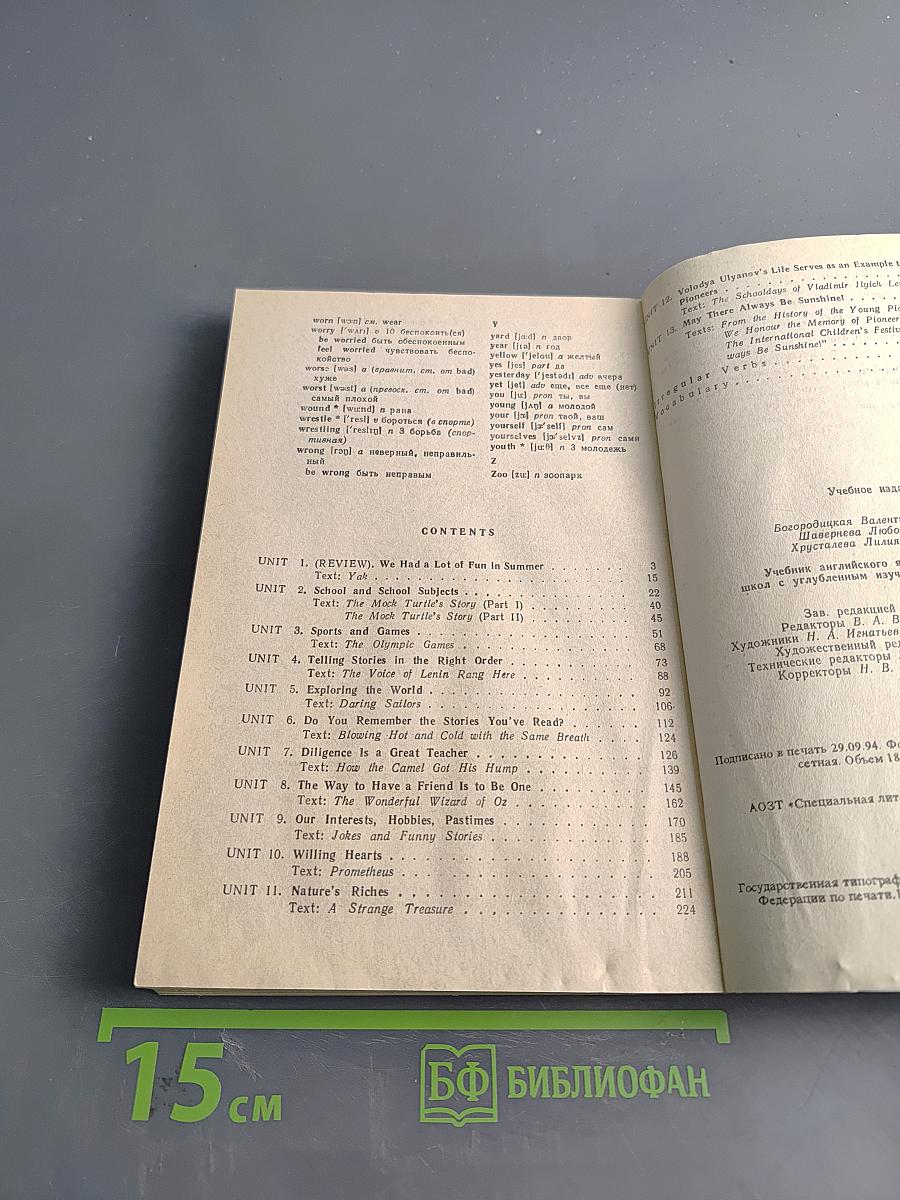 worn [wɔ:n] см. wear
worry ['wʌrɪ] v 10 беспокоить(ся)
be worried быть обеспокоенным
feel worried чувствовать беспо-
койство
worse [wə:s] a (сравнит. ст. от bad)
хуже
worst [wə:st] a (превосх. ст. от bad)
самый плохой
wound * [wu:nd] n рана
wrestle * ['resl] v бороться (в спорте)
wrestling ['reslɪŋ] n 3 борьба (спор-
тивная)
wrong [rɔŋ] a неверный, неправиль-
ный
be wrong быть неправым
Y
yard [jɑ:d] n двор
year [jɪə] n год
yellow ['jelou] a желтый
yes [jes] part да
yesterday ['jestədɪ] adv вчера
yet [jet] adv еще, все еще (нет)
you [ju:] pron ты, вы
young [jʌŋ] a молодой
your [jɔ:] pron твой, ваш
yourself [jɔ:'self] pron сам
yourselves [jɔ:'selvz] pron сами
youth * [ju:θ] n 3 молодежь
Z
Zoo [zu:] n зоопарк
CONTENTS
UNIT 1. (REVIEW). We Had a Lot of Fun in Summer . . . . . . . . 3
Text: Yak . . . . . . . . 15
UNIT 2. School and School Subjects . . . . . . . . 22
Text: The Mock Turtle's Story (Part I) . . . . . . . . 40
The Mock Turtle's Story (Part II) . . . . . . . . 45
UNIT 3. Sports and Games . . . . . . . . 51
Text: The Olympic Games . . . . . . . . 68
UNIT 4. Telling Stories in the Right Order . . . . . . . . 73
Text: The Voice of Lenin Rang Here . . . . . . . . 88
UNIT 5. Exploring the World . . . . . . . . 92
Text: Daring Sailors . . . . . . . . 106
UNIT 6. Do You Remember the Stories You've Read? . . . . . . . . 112
Text: Blowing Hot and Cold with the Same Breath . . . . 124
UNIT 7. Diligence Is a Great Teacher . . . . . . . . 126
Text: How the Camel Got His Hump . . . . . . . . 139
UNIT 8. The Way to Have a Friend Is to Be One . . . . . . . . 145
Text: The Wonderful Wizard of Oz . . . . . . . . 162
UNIT 9. Our Interests, Hobbies, Pastimes . . . . . . . . 170
Text: Jokes and Funny Stories . . . . . . . . 185
UNIT 10. Willing Hearts . . . . . . . . 188
Text: Prometheus . . . . . . . . 205
UNIT 11. Nature's Riches . . . . . . . . 211
Text: A Strange Treasure . . . . . . . . 224
UNIT 12. Volodya Ulyanov's Life Serves as an Example
Pioneers . . . . . . . .
Text: The Schooldays of Vladimir Ilyich
UNIT 13. May There Always Be Sunshine! . . . .
Texts: From the History of the Young
We Honour the Memory of Pioneer
The International Children's
ways Be Sunshine!" . . . .
Irregular Verbs . . . . . . . .
Vocabulary . . . . . . . .
Учебное
Богородицкая
Шавернева
Хрусталева Лилия
Учебник английского
школ с углубленным
Зав. редакцией
Редакторы В. А.
Художники Н. А. Игнатьев
Художественный
Технические редакторы
Корректоры Н. В.
Подписано в печать 29.09.94.
сетная. Объем 18
АОЗТ «Специальная
Государственная
Федерации по печати.
15 см
БФ БИБЛИОФАН